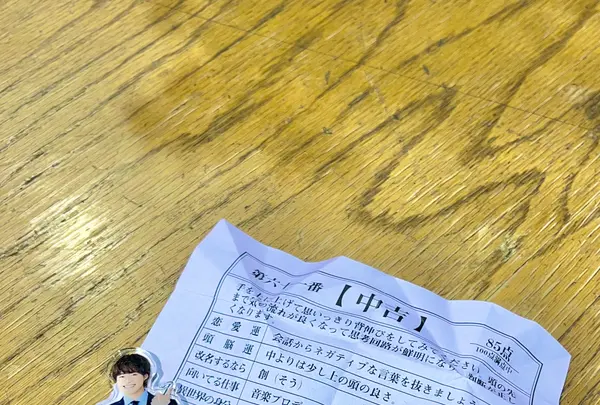 第六十一番
【中吉】
85点
100点満点中
手を上に上げて思いっきり背伸びをしてみてください。頭の先
まで気の流れが良くなって思考回路が鮮明になり、
くなります。
恋愛運
会話からネガティブな言葉を抜きましょう
頭脳運
中よりは少し上の頭の良さ。
改名するなら
創（そう）
向いてる仕事
音楽プロデ
異世界の身分